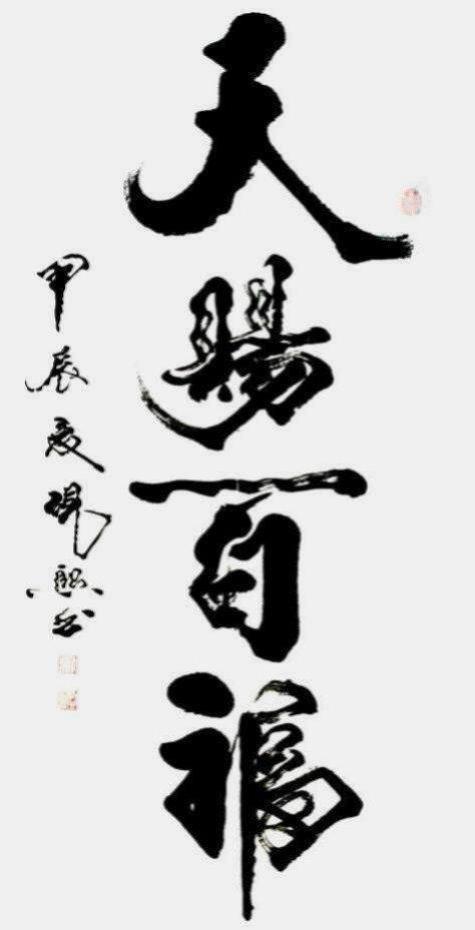 天賜百福
甲辰夏硯